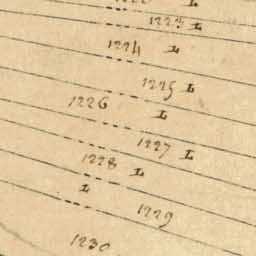 1223 L
1224 L
1225 L
1226 L
1227 L
1228 L
L
1229
1230